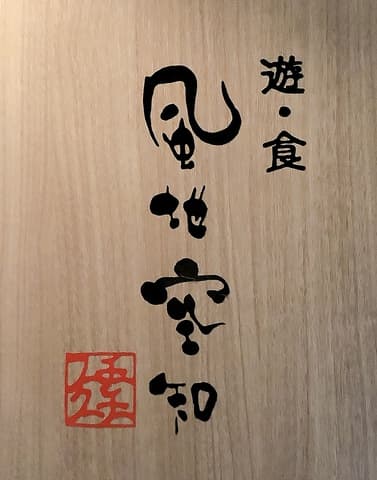 遊・食
風地空知